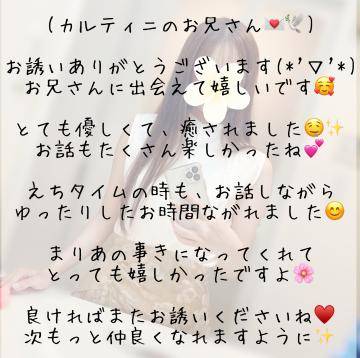 (カルティニのお兄さん💌🕊️)
お誘いありがとうございます(*'▽'*)
お兄さんに出会えて嬉しいです🥰
とても優しくて、癒されました☺️✨
お話もたくさん楽しかったね💕
えちタイムの時も、お話しながら
ゆったりしたお時間ながれました😊
まりあの事きになってくれて
とっても嬉しかったですよ🌸
良ければまたお誘いくださいね♥️
次もっと仲良くなれますように✨